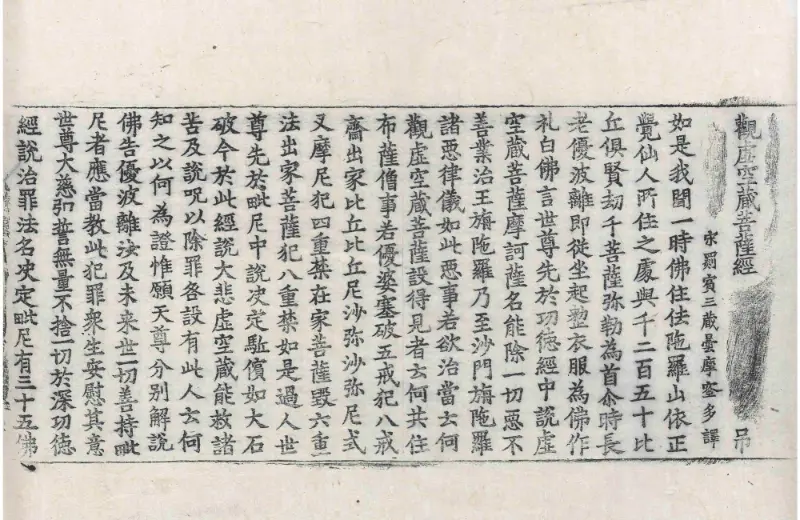 觀虛空藏菩薩經 弔
宋罽賓三藏曇摩蜜多譯
如是我聞一時佛住佉陁羅山依正
覺仙人所住之處與千二百五十比
丘俱賢劫千菩薩弥勒為首尒時長
老優波離即從坐起整衣服為佛作
礼白佛言世尊先於功德經中說虛
空藏菩薩摩訶薩名能除一切惡不
善業治王旃陁羅乃至沙門旃陁羅
諸惡律儀如此惡事若欲治當云何
觀虛空藏菩薩設得見者云何共住
布薩僧事若優婆塞破五戒犯八戒
齋出家比丘比丘尼沙弥沙弥尼式
叉摩尼犯四重禁在家菩薩毀六重
法出家菩薩犯八重禁如是過人世
尊先於毗尼中說决定駈儐如大石
破今於此經說大悲虛空藏能救諸
苦及說呪以除罪各設有此人云何
知之以何為證惟願天尊分別解說
佛告優波離汝及未来世一切善持毗
尼者應當教此犯罪衆生安慰其意
世尊大慈弘誓無量不捨一切於深功德
經說治罪法名决定毗尼有三十五佛